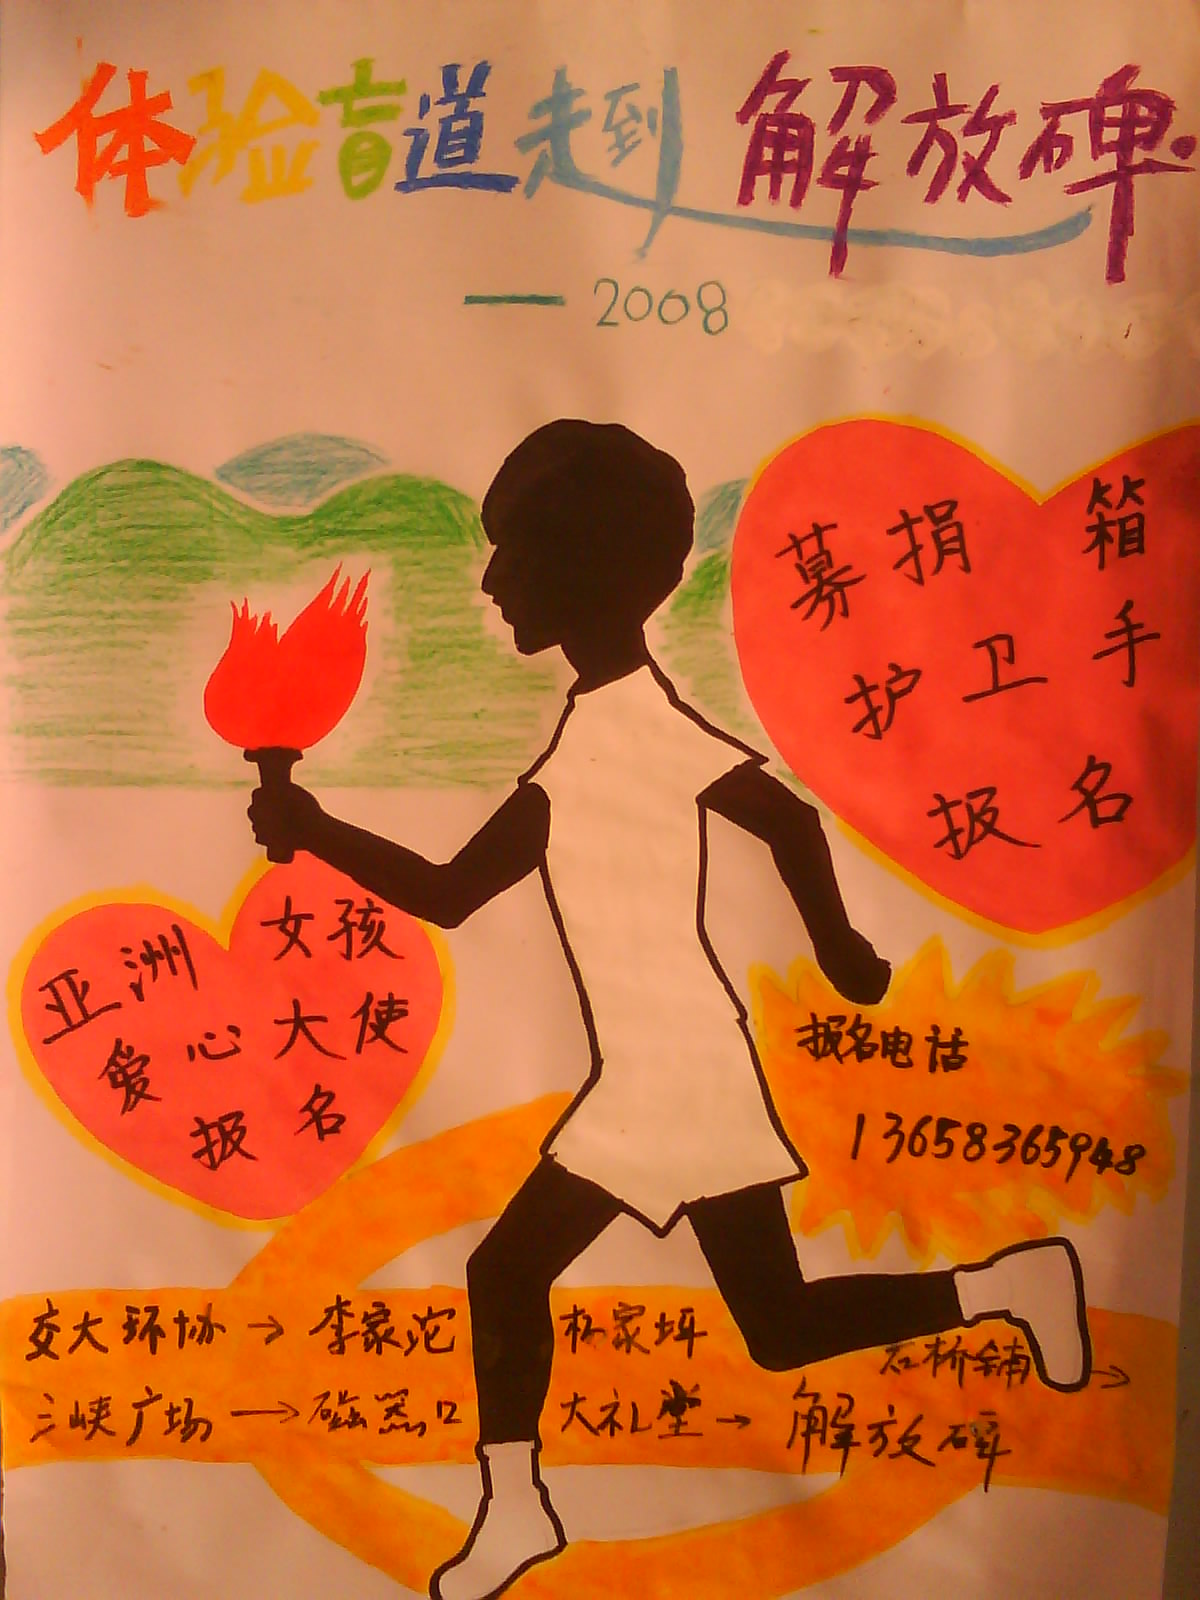 体验盲道走到 解放碑
— 2008
募捐箱
护卫手
报名
亚洲女孩
爱心大使
报名
报名电话
13658365948
交大环协→李家沱 杨家坪 石桥铺→
三峡广场→磁器口 大礼堂→解放碑